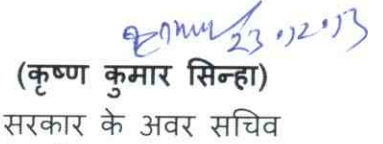 23.12.13
(कृष्ण कुमार सिन्हा)
सरकार के अवर सचिव